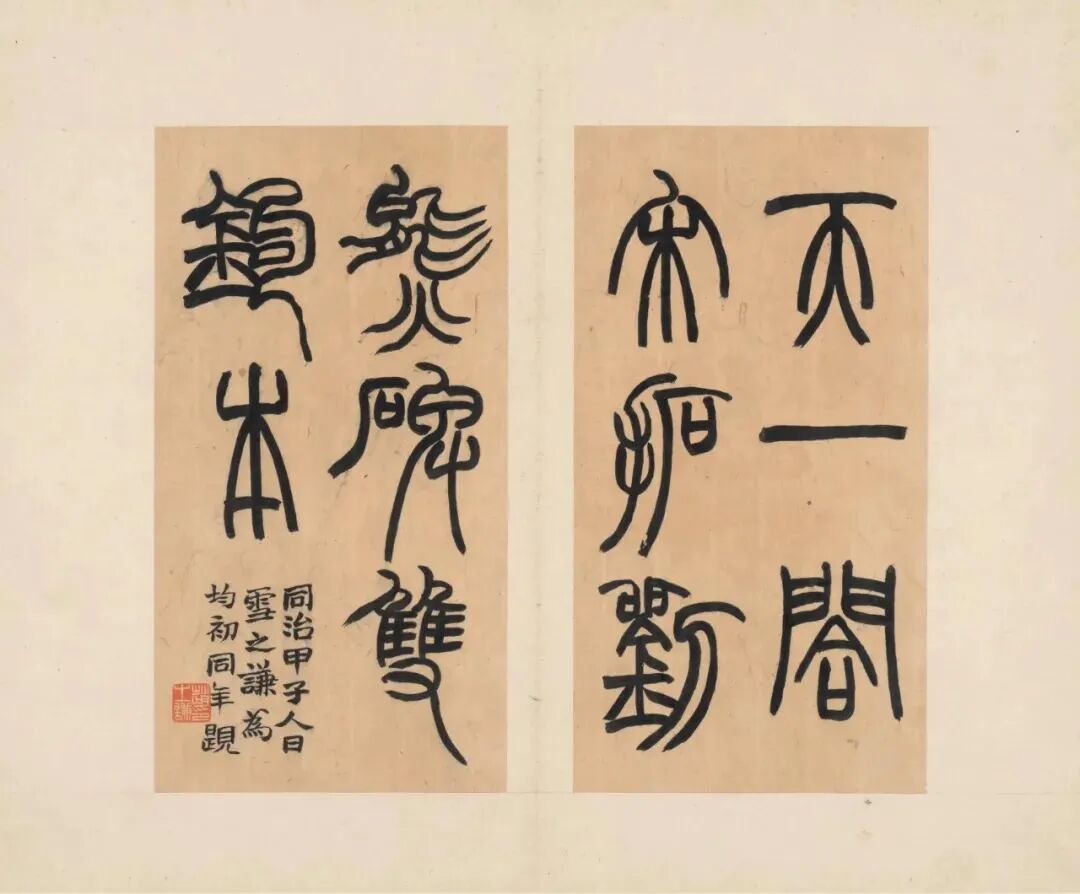 天一閣
宋拓劉
熊碑雙
鉤本
同治甲子人日
雪之謙為
均初同年題